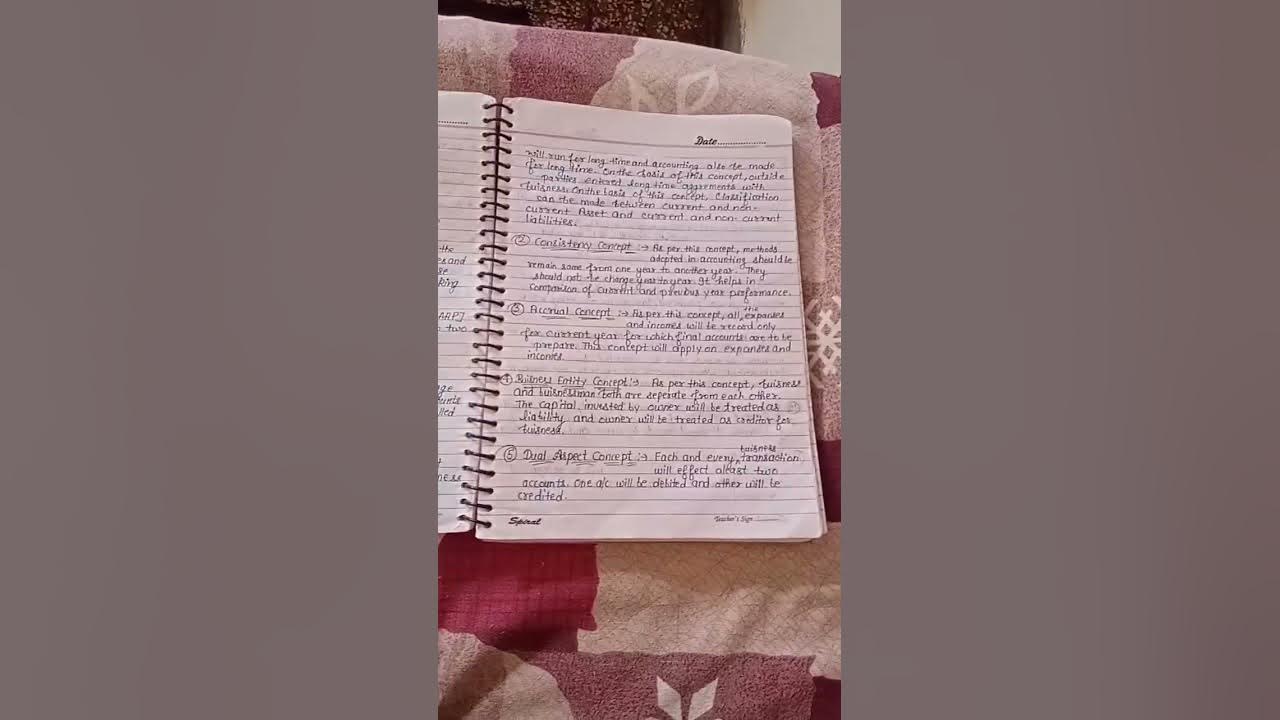 the
es and
se
King
AARP]
two
ge
unts
lled
t
ness
Date
will run for long time and accounting also be made
for long time. On the basis of this concept, outside
parties entered long time aggrements with
buisness. On the basis of this concept, Classification
can the made between current and non-
current Asset and current and non-current
liabilities.
② Consistency Concept :→ As per this concept, methods
adopted in accounting should be
remain same from one year to another year. They
should not be change year to year. It helps in
comparison of current and previous year performance.
③ Accrual Concept :→ As per this concept, all, the expanses
and incomes will be record only
for current year for which final accounts are to be
prepare. This concept will apply on expanses and
incomes.
④ Buisness Entity Concept :→ As per this concept, buisness
and buisnessman both are seperate from each other.
The capital invested by owner will be treated as
liability and owner will be treated as creditor for
buisness.
⑤ Dual Aspect Concept :→ Each and every, buisness transaction
will effect atleast two
accounts. One a/c will be debited and other will be
credited.
Spiral
Teacher's Sign